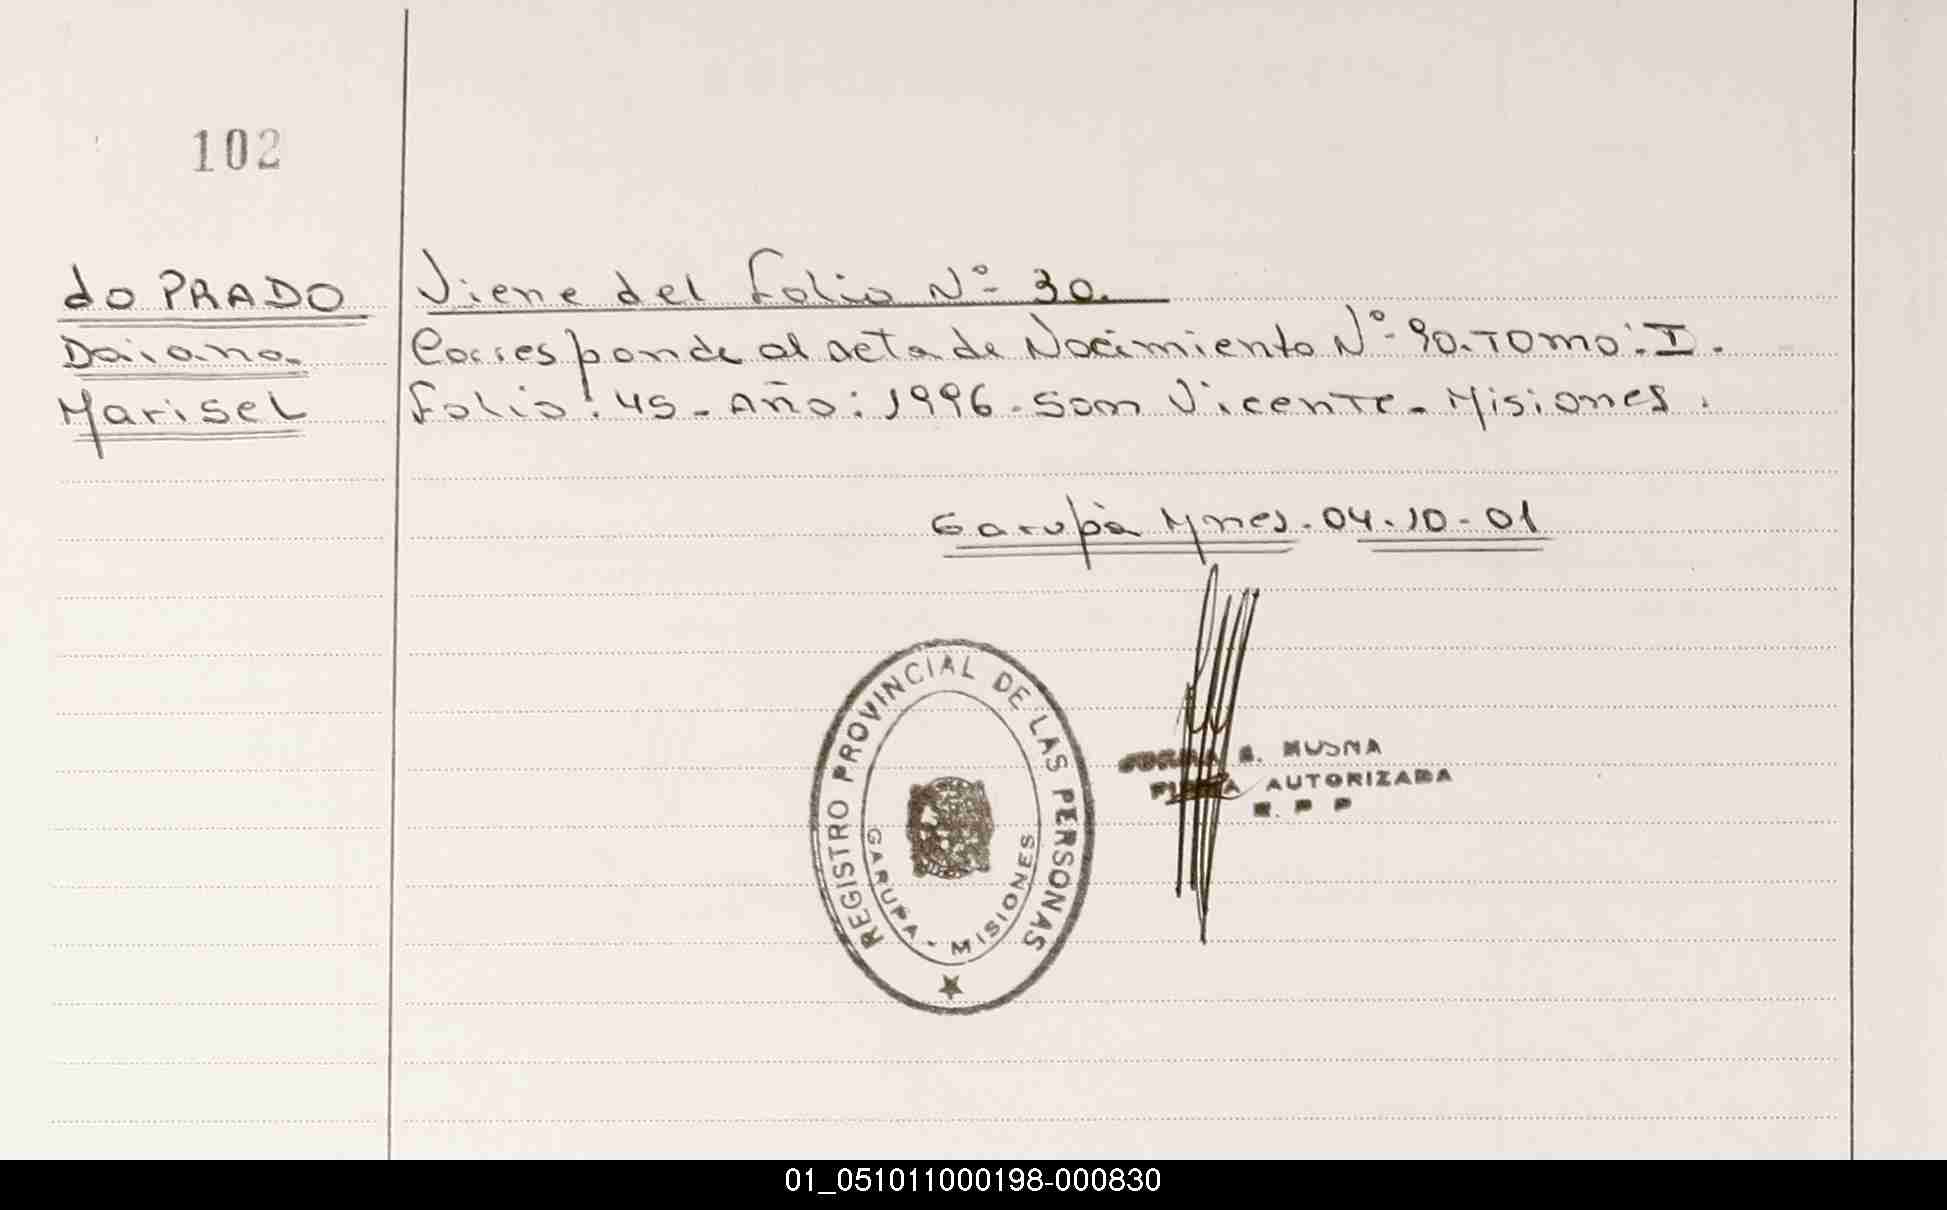 102
do PRADO
Daiana
Marisel
Viene del folio Nº 30.
Corresponde al acta de Nacimiento Nº 90. Tomo: I.
folio: 45 - Año: 1996. San Vicente - Misiones.
Garupà Mnes. 04.10-01
REGISTRO PROVINCIAL DE LAS PERSONAS
GARUPA - MISIONES
MUSNA
FIRMA AUTORIZADA
R. P P
01_051011000198-000830